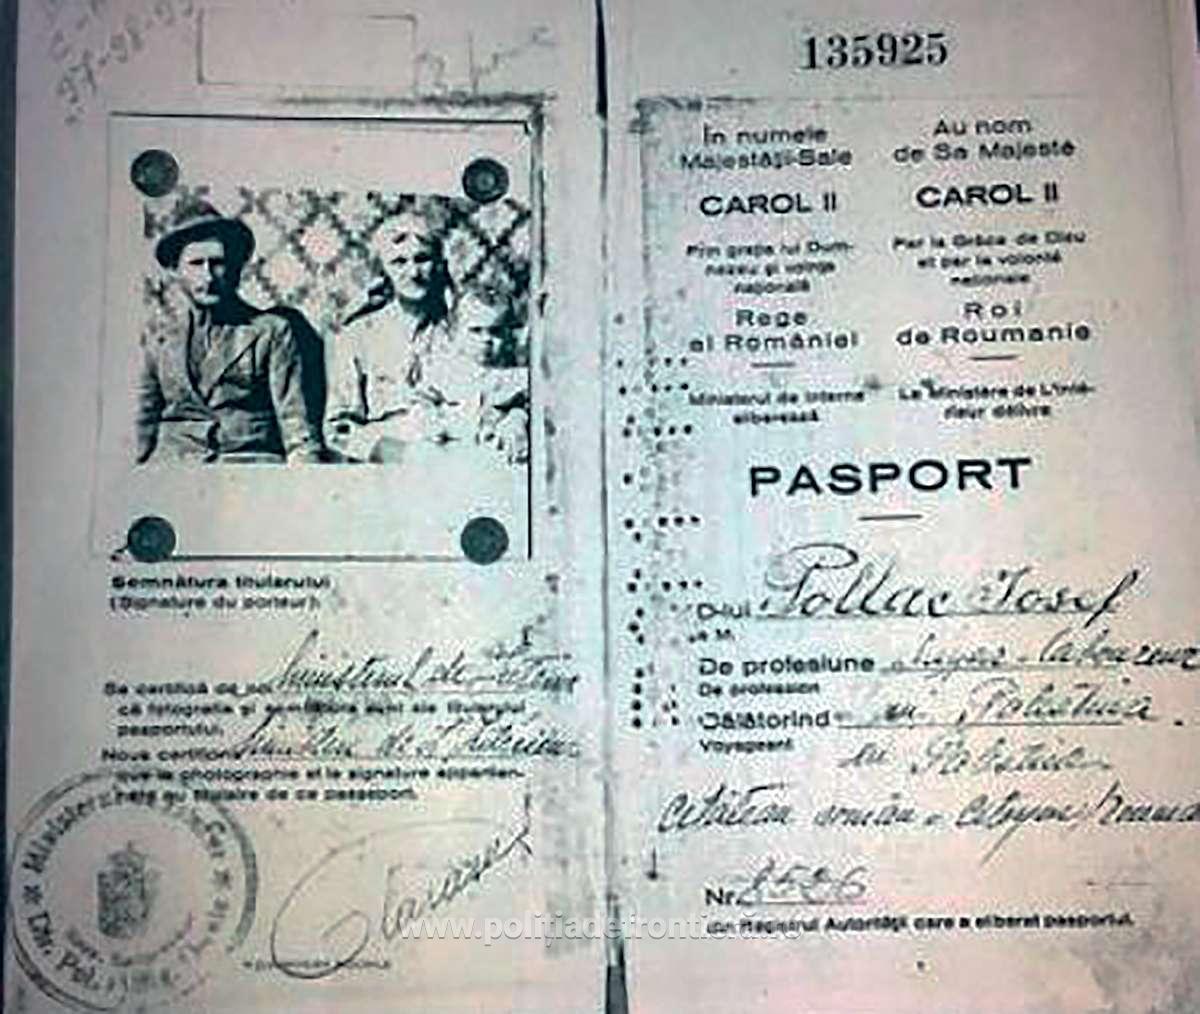 97-98-99
Semnătura titularului
(Signature du porteur):
Se certifică de noi Ministerul de Interne
că fotografia și semnătura sunt ale titularului
pasportului.
Nous certifions
que la photographie et la signature apparten-
nent au titulaire de ce passeport.
www.politiadefrontiera.ro
135925
În numele
Majestății-Sale
CAROL II
Prin grația lui Dum-
nezeu și voința
națională
Rege
al României
Ministerul de Interne
eliberează
Au nom
de Sa Majesté
CAROL II
Par la Grâce de Dieu
et par la volonté
nationale
Roi
de Roumanie
Le Ministère de L'Inté-
rieur délivre
PASPORT
D-lui Pollac Iosef
à M.
De profesiune
De profession
Călătorind în Palestina.
Voyageant
en Palestine
cetățean român - citoyen roumain
Nr. 8526
din Registrul Autorității care a eliberat pasportul.